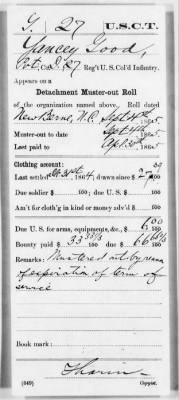 G. | 27 | U.S.C.T.
Yancey Good,
Pvt., Co. G, 27 Reg't U.S. Col'd Infantry.
Appears on a
Detachment Muster-out Roll
of the organization named above. Roll dated
New Berne, N.C. Sept 4th, 1865
Muster-out to date Sept 4th, 1865
Last paid to Apr. 30th, 1865
Clothing account:
Last settled 31st, 1864; drawn since $ 27 100
Due soldier $ 100; due U.S. $ 100
Am't for cloth'g in kind or money adv'd $ 100
Due U.S. for arms, equipments, &c., $ 6.00 100
Bounty paid $ 33 33⅓ 100; due $ 66 66⅔ 100
Remarks: Mustered out by reason
of expiration of term of
service
Book mark:
(649)
Copyist.